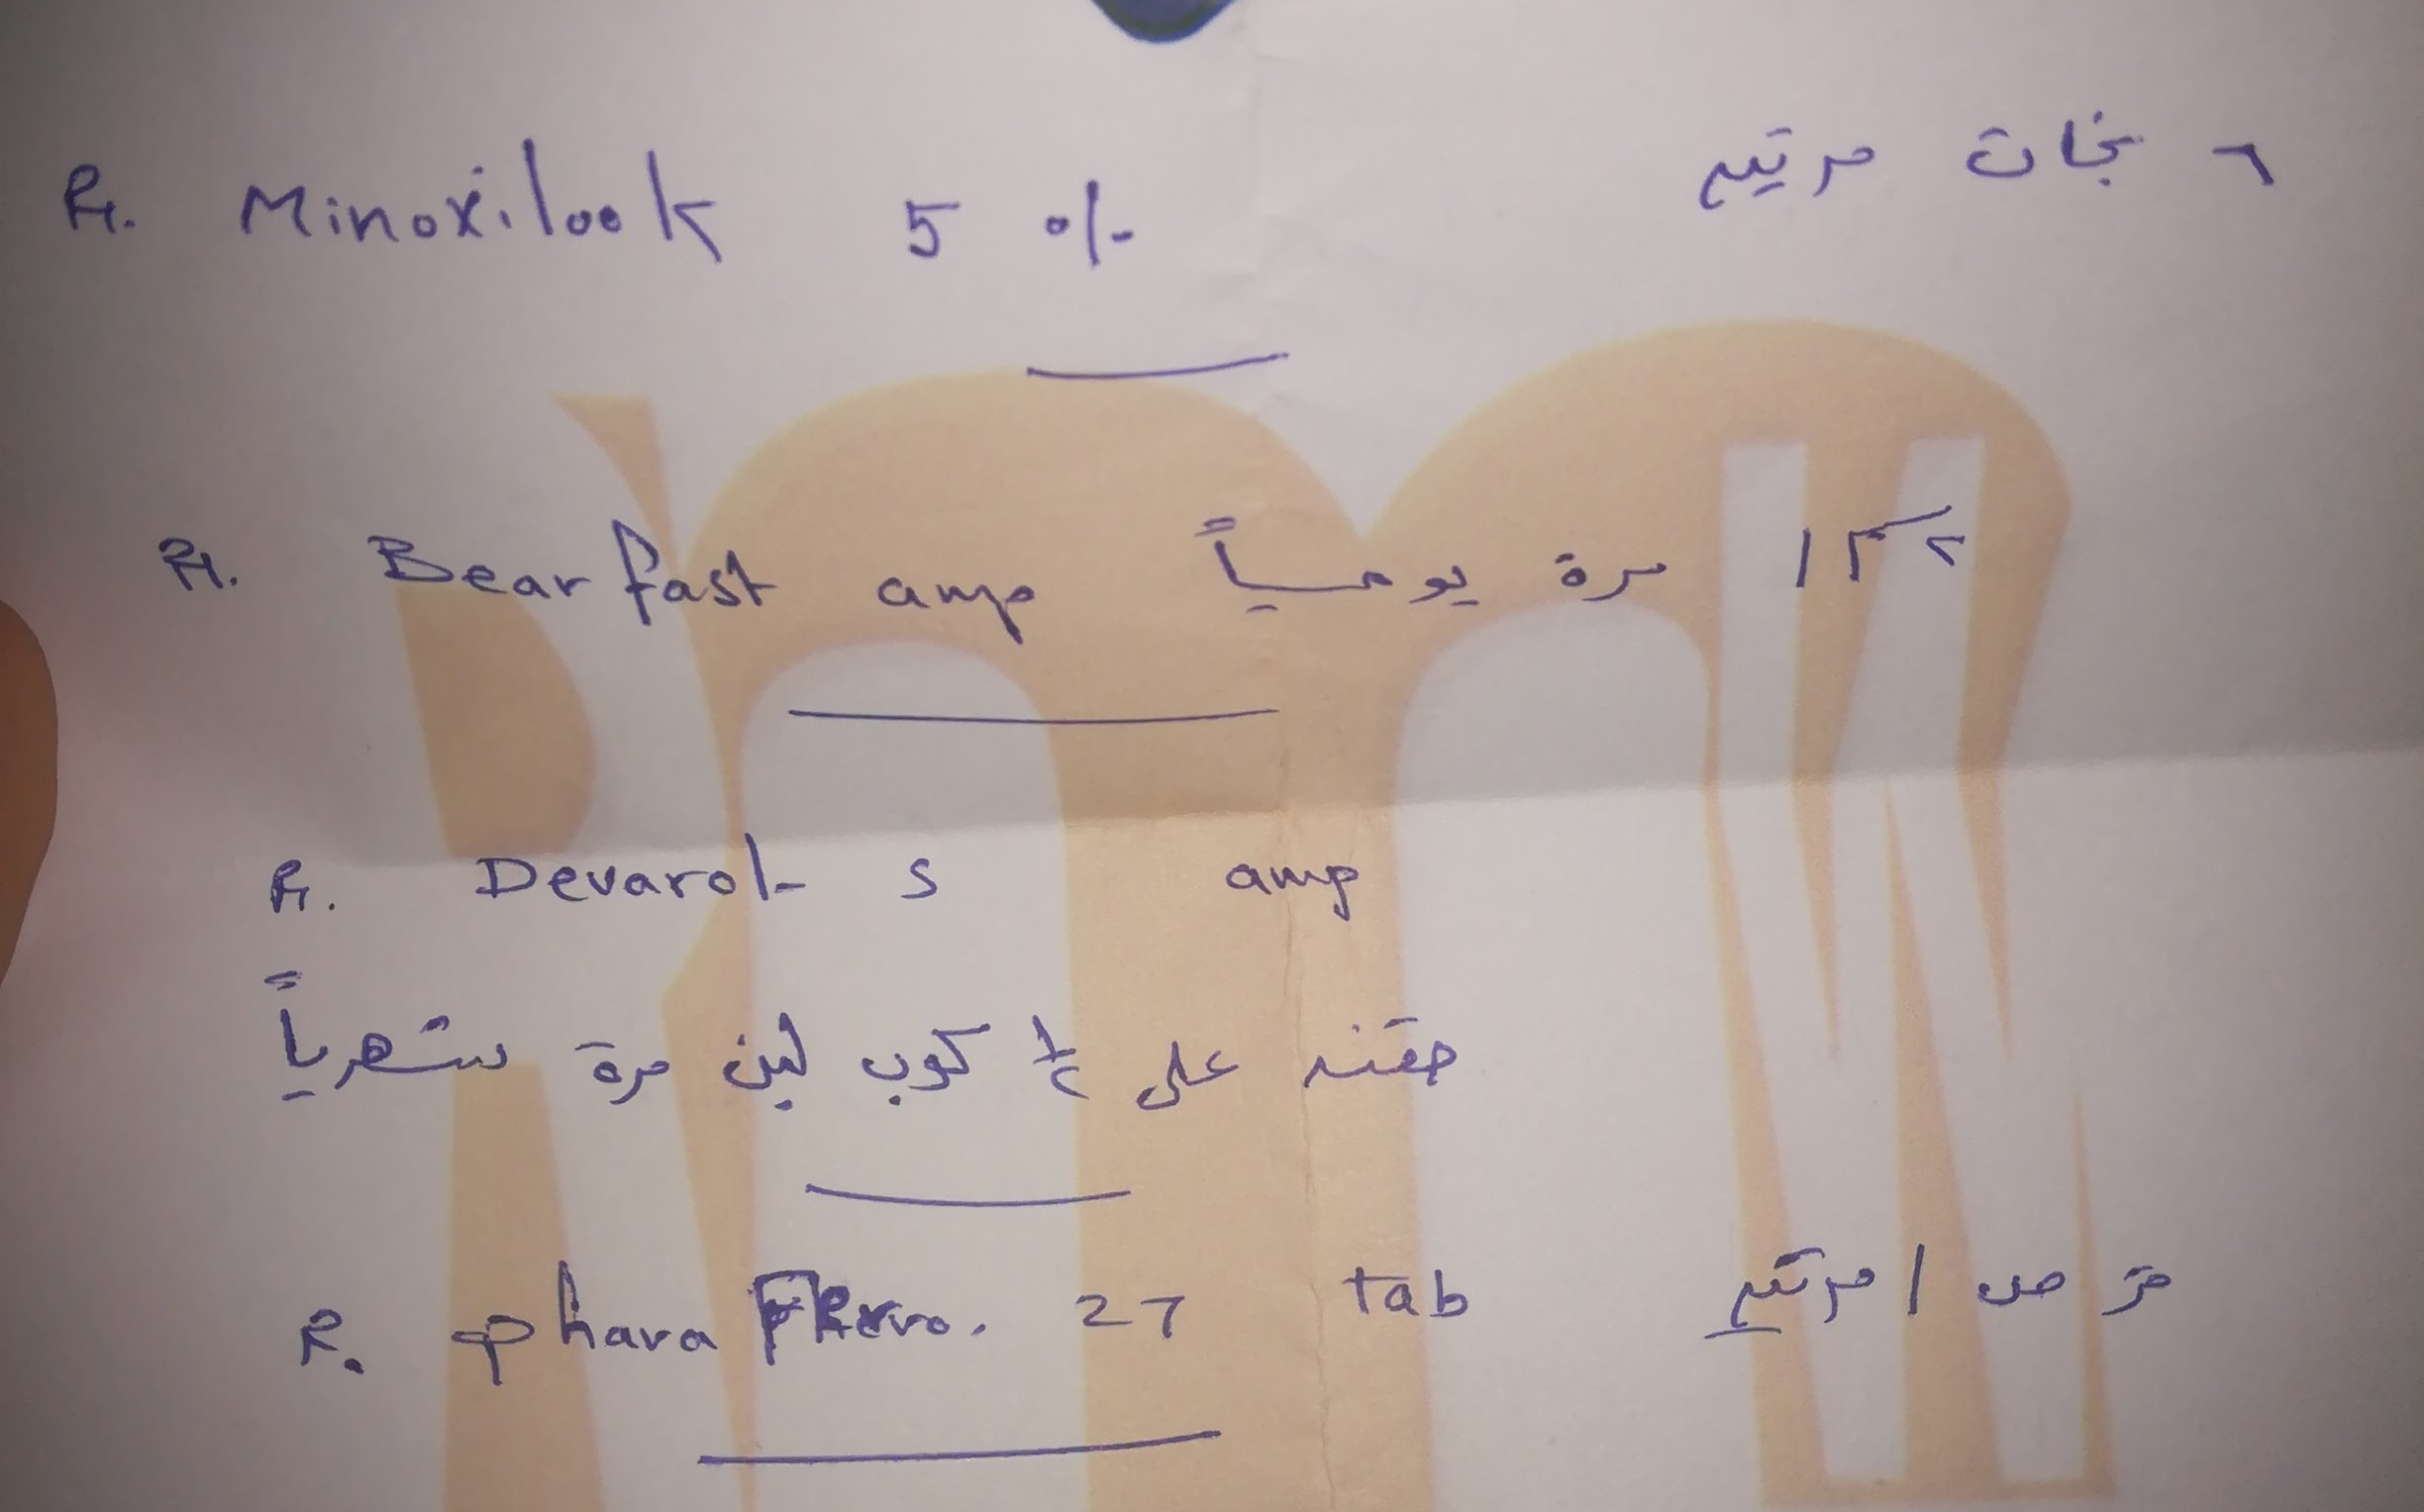 R. Minoxilook 5 % ٦ بخات مرتين
R. Bear fast amp ٢ سم / مرة يومياً
R. Devarol-s amp
حقنه على ١/٢ كوب لبن مرة شهرياً
R. pharaFerro. 27 tab قرص / مرتين